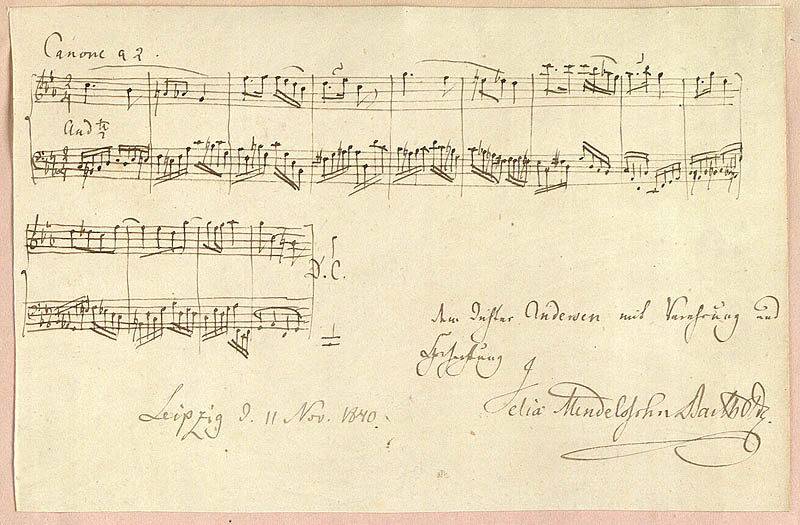 Canone a 2.
And.te
D. C.
dem Dichter Andersen mit Verehrung und
Hochachtung
Leipzig d. 11 Nov. 1840.
Felix Mendelssohn Bartholdy.